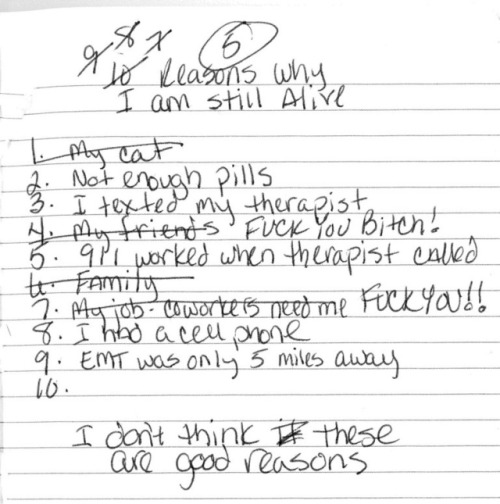 9 8 7 5
10 Reasons why
I am still Alive
1. My cat
2. Not enough pills
3. I texted my therapist
4. My friends FUCK You Bitch!
5. 911 worked when therapist called
6. FAMily
7. My job - coworkers need me FUCK YOU!!
8. I had a cell phone
9. EMT was only 5 miles away
10.
I don't think these
are good reasons